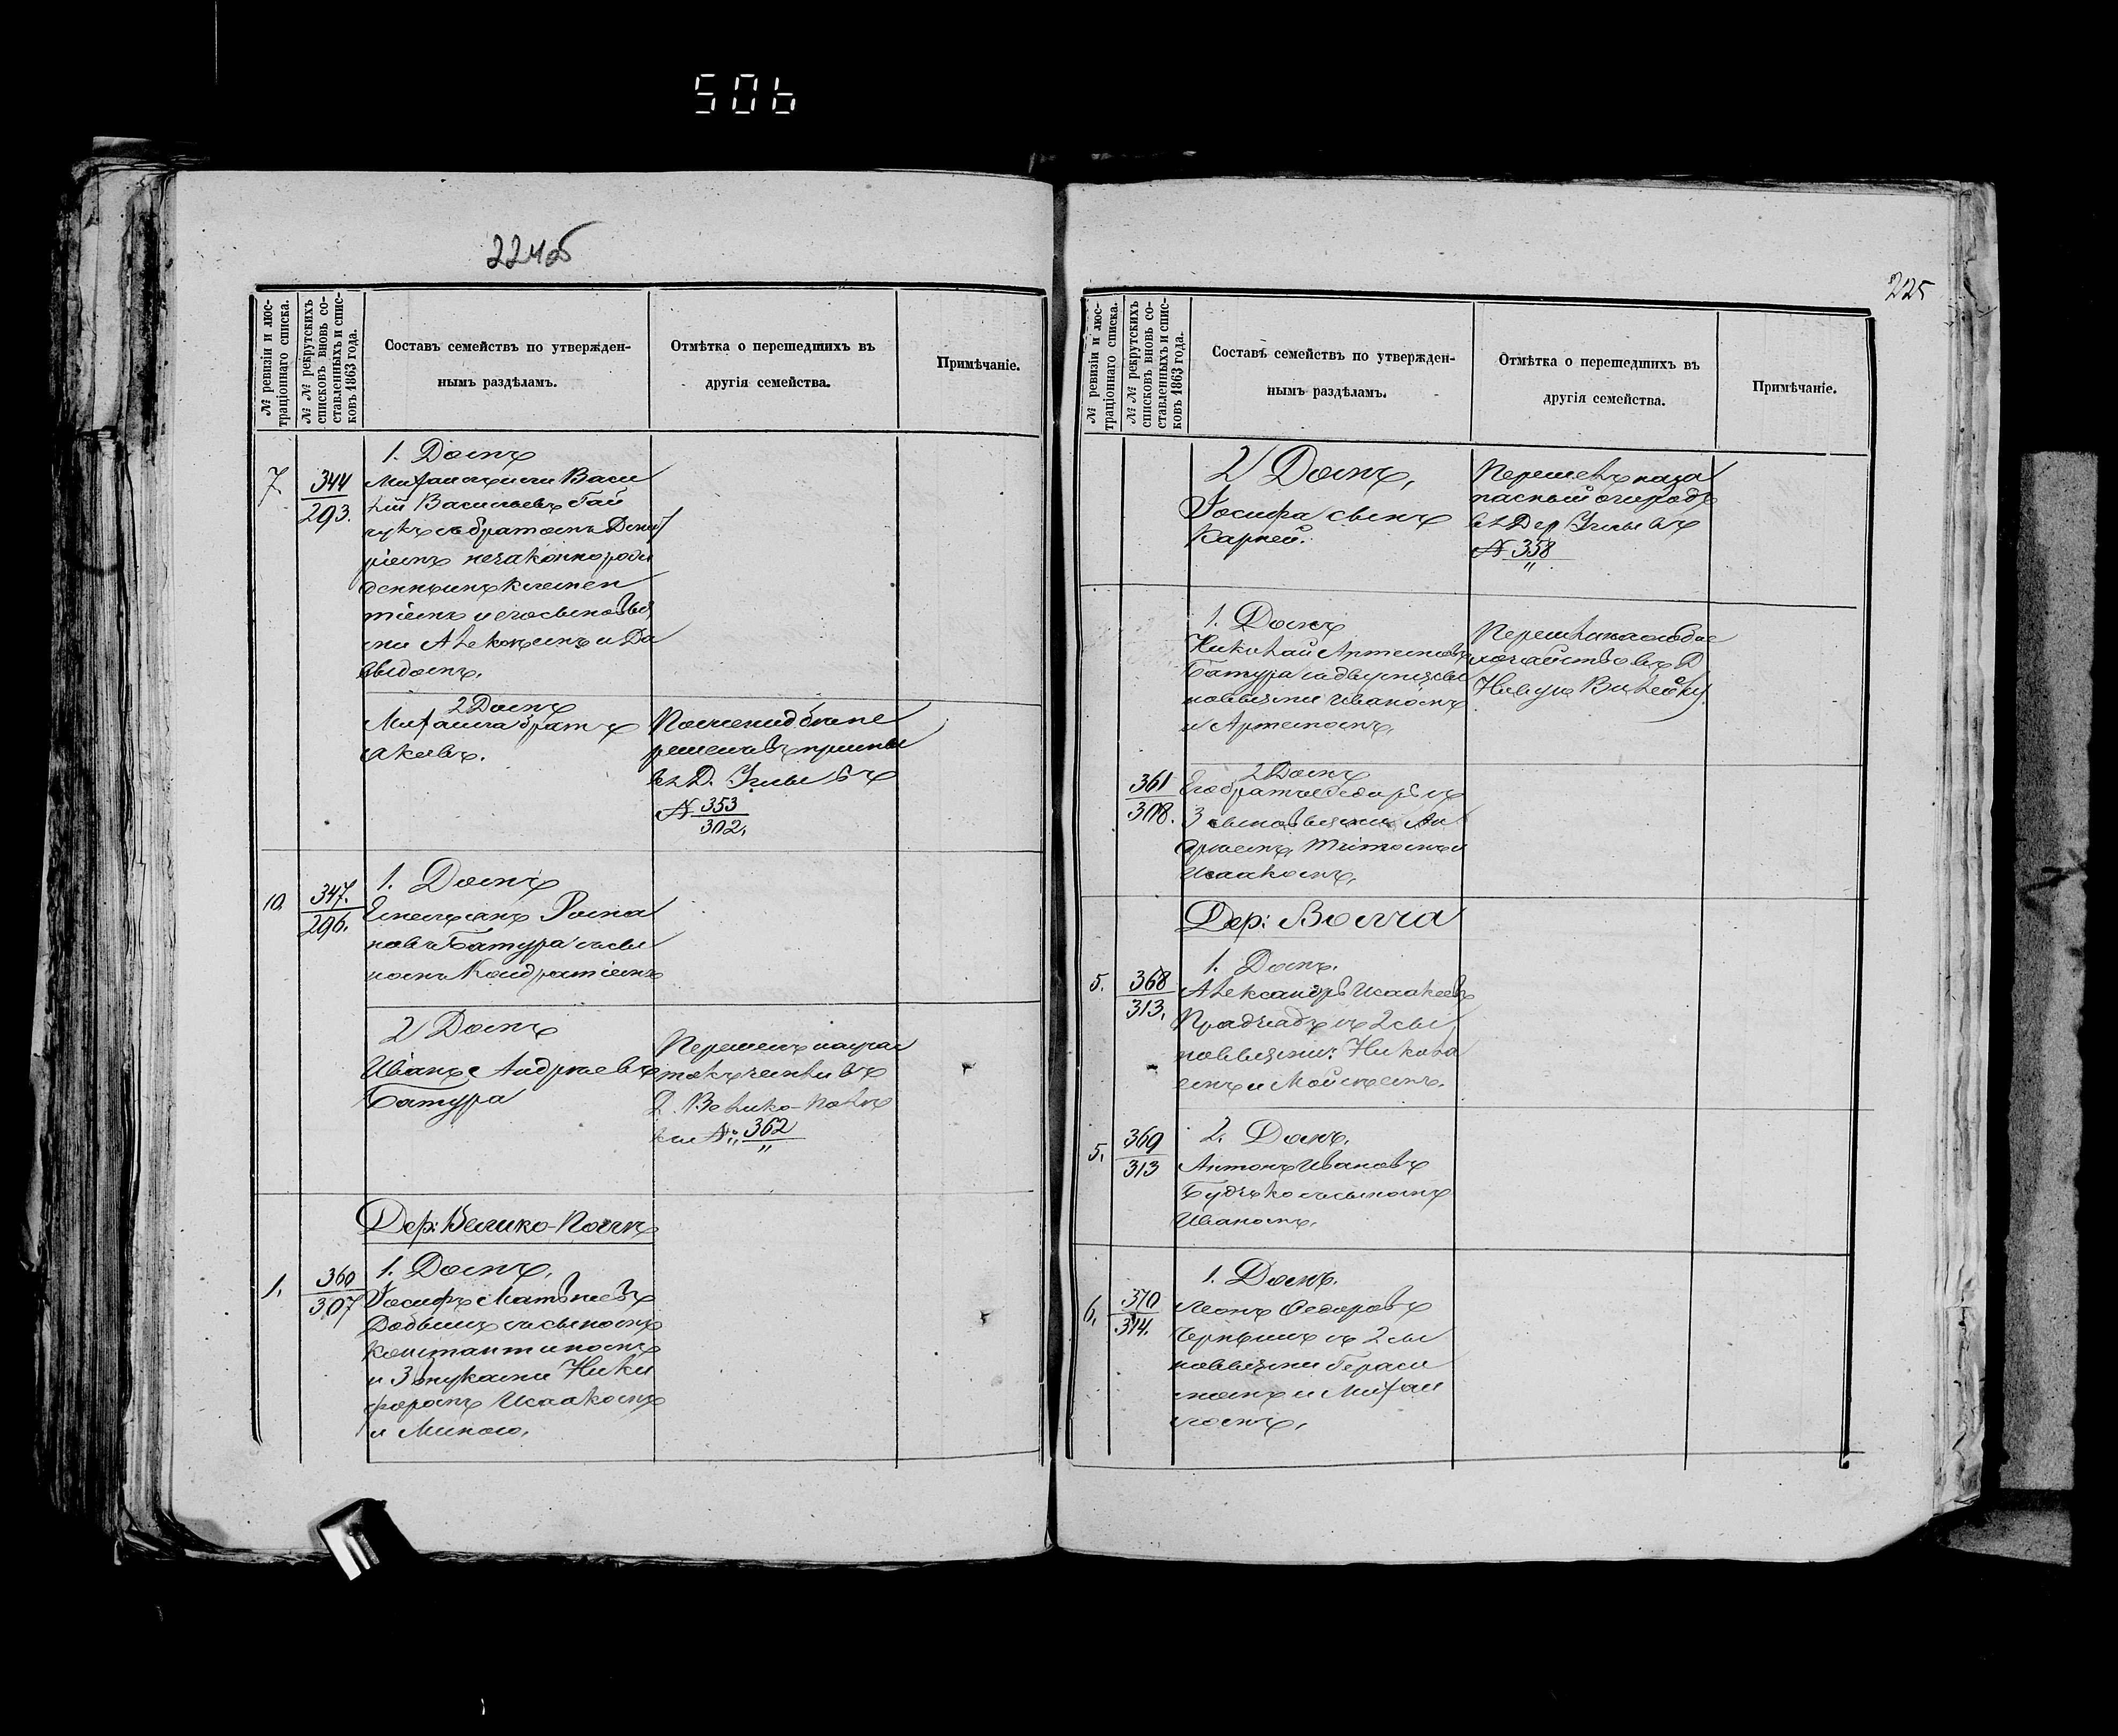 506
224об
№ ревизіи и люс-
траціоннаго списка.
№№ рекрутскихъ
списковъ вновь со-
ставленныхъ и спис-
ковъ 1863 года.
Составъ семействъ по утвержден-
нымъ раздѣламъ.
Отмѣтка о перешедшихъ въ
другія семейства.
Примѣчаніе.
7.
344
293.
1. Домъ
Васи
лій Васильевъ Гай
чукъ съ братомъ
незаконнорож
деннымъ Клемен
тіемъ и его сыновья
ми Алексѣемъ и Да
выдомъ.
2 Домъ
Михаила братъ
Яковъ.
решелъ въ примы
въ Д. Углы въ
№ 353
302.
10.
347.
296.
1. Домъ
Емельянъ Рома
новъ Батура съ сы
номъ Кондратіемъ
2 Домъ
Иванъ Андреевъ
Батура
Перешелъ на учас
токъ земли въ
Д. Велико-Поль
№ 362
"
Дер: Велико-Полль
1.
360
307
1. Домъ,
Іосифъ Матвѣевъ
съ сыномъ
Константиномъ
и 3 внуками Ники
форомъ Исаакомъ
и Миною.
225
№ ревизіи и люс-
траціоннаго списка.
№№ рекрутскихъ
списковъ вновь со-
ставленныхъ и спис-
ковъ 1863 года.
Составъ семействъ по утвержден-
нымъ раздѣламъ.
Отмѣтка о перешедшихъ въ
другія семейства.
Примѣчаніе.
2 Домъ,
Іосифа сынъ
Карней.
Перешелъ на за
пасный огородъ
въ Дер Углы въ
№ 358
"
1. Домъ
Николай Артемовъ
Батура съ двумя сы
новьями Иваномъ
и Артемомъ,
Перешли на особое
хозяйство въ Д
2 Домъ
361
308.
Его братъ Ѳедоръ съ
3 сыновьями Ан
дреемъ, Титомъ и
Исаакомъ,
Дер: Волча
5.
368
313,
1. Домъ.
Александръ Исаакевъ
Прадзѣдъ съ 2 сы
новьями: Никола
емъ и Мойсѣемъ.
5.
369
313
2. Домъ.
Антонъ Ивановъ
Будзько съ сыномъ
Иваномъ.
6.
370
314.
1. Домъ.
Леонъ Ѳедоровъ
съ 2 сы
новьями Гераси
момъ и Михаи
ломъ,